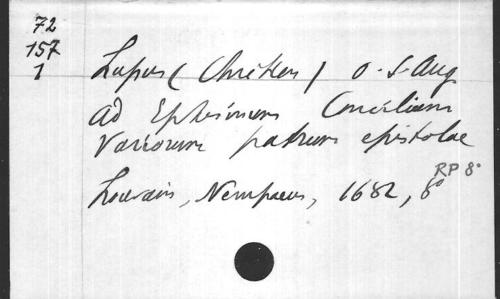 72
157
1
Lupus (Chrétien) O. S. Aug
Ad Ephesinum Concilium
Variorum patrum epistolae
RP 8°
Louvain, Nempaeus, 1682, 8°